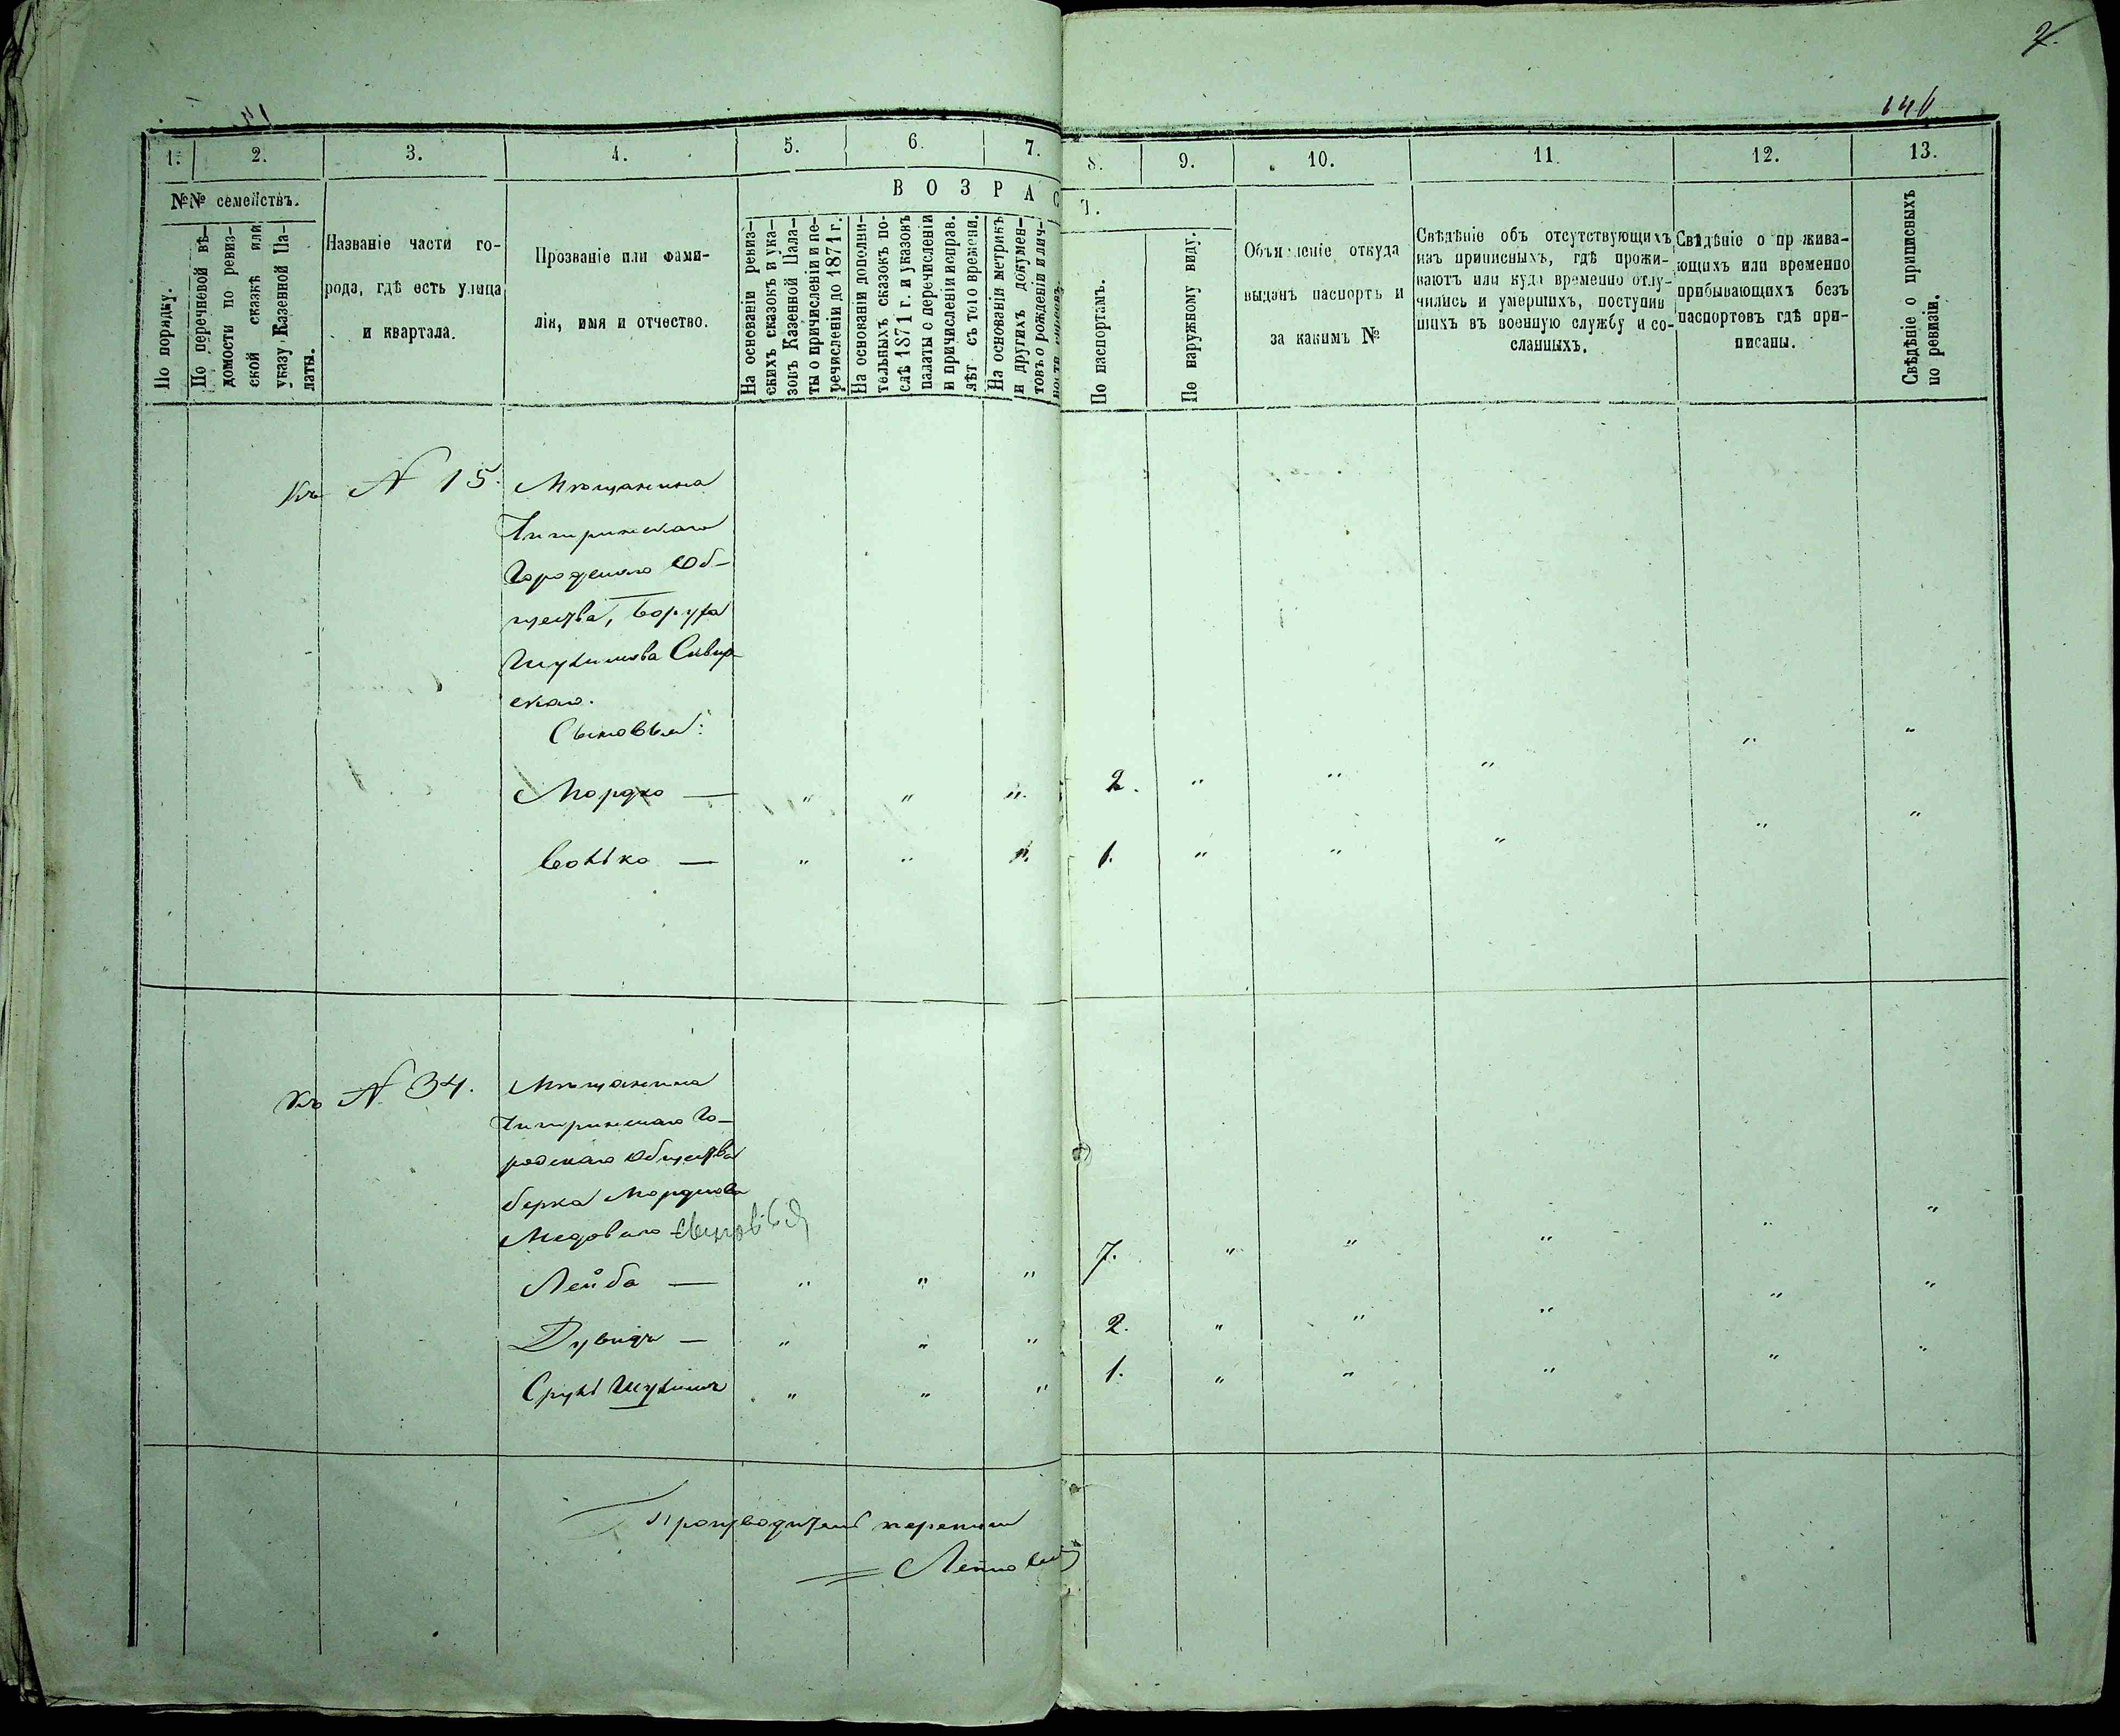 2.
146
1. 2. 3. 4. 5. 6. 7. 8. 9. 10. 11. 12. 13.
№№ семействъ.
По порядку.
По перечневой вѣ-
домости по ревиз-
ской сказкѣ или
указу Казенной Па-
латы.
Названіе части го-
рода, гдѣ есть улица
и квартала.
Прозваніе или фами-
лія, имя и отчество.
ВОЗРАСТ.
На основаніи ревиз-
скихъ сказокъ и ука-
зовъ Казенной Пала-
ты о причисленіи и пе-
речисленіи до 1871 г.
На основаніи дополни-
тельныхъ сказокъ по-
слѣ 1871 г. и указовъ
палаты о перечисленіи
и причисленіи исправ.
лѣт съ того времени.
На основаніи метрикъ
и другихъ докумен-
товъ о рожденіи и лич-
По паспортамъ.
По наружному виду.
Объясненіе откуда
выданъ паспортъ и
за какимъ №
Свѣдѣніе объ отсутствующихъ
изъ приписныхъ, гдѣ прожи-
ваютъ или куда временно отлу-
чились и умершихъ, поступив
шихъ въ военную службу и со-
сланныхъ.
Свѣдѣніе о прожива-
ющихъ или временно
прибывающихъ безъ
паспортовъ гдѣ при-
писаны.
Свѣдѣніе о приписныхъ
по ревизіи.
Къ № 15. Мѣщанина
Городскаго Об-
щества, Боруха
скаго.
Сыновья:
Мордко — " " " 2. " " " " "
— " " " 1. " " " " "
Къ № 34. Мѣщанина
Го-
родскаго Общества
Берка Мордкова
Медоваго Сыновья
Лейба — " " " 7. " " " " "
Дувидъ — " " " 2. " " " " "
Сруль " " " 1. " " " " "
Производитель переписи